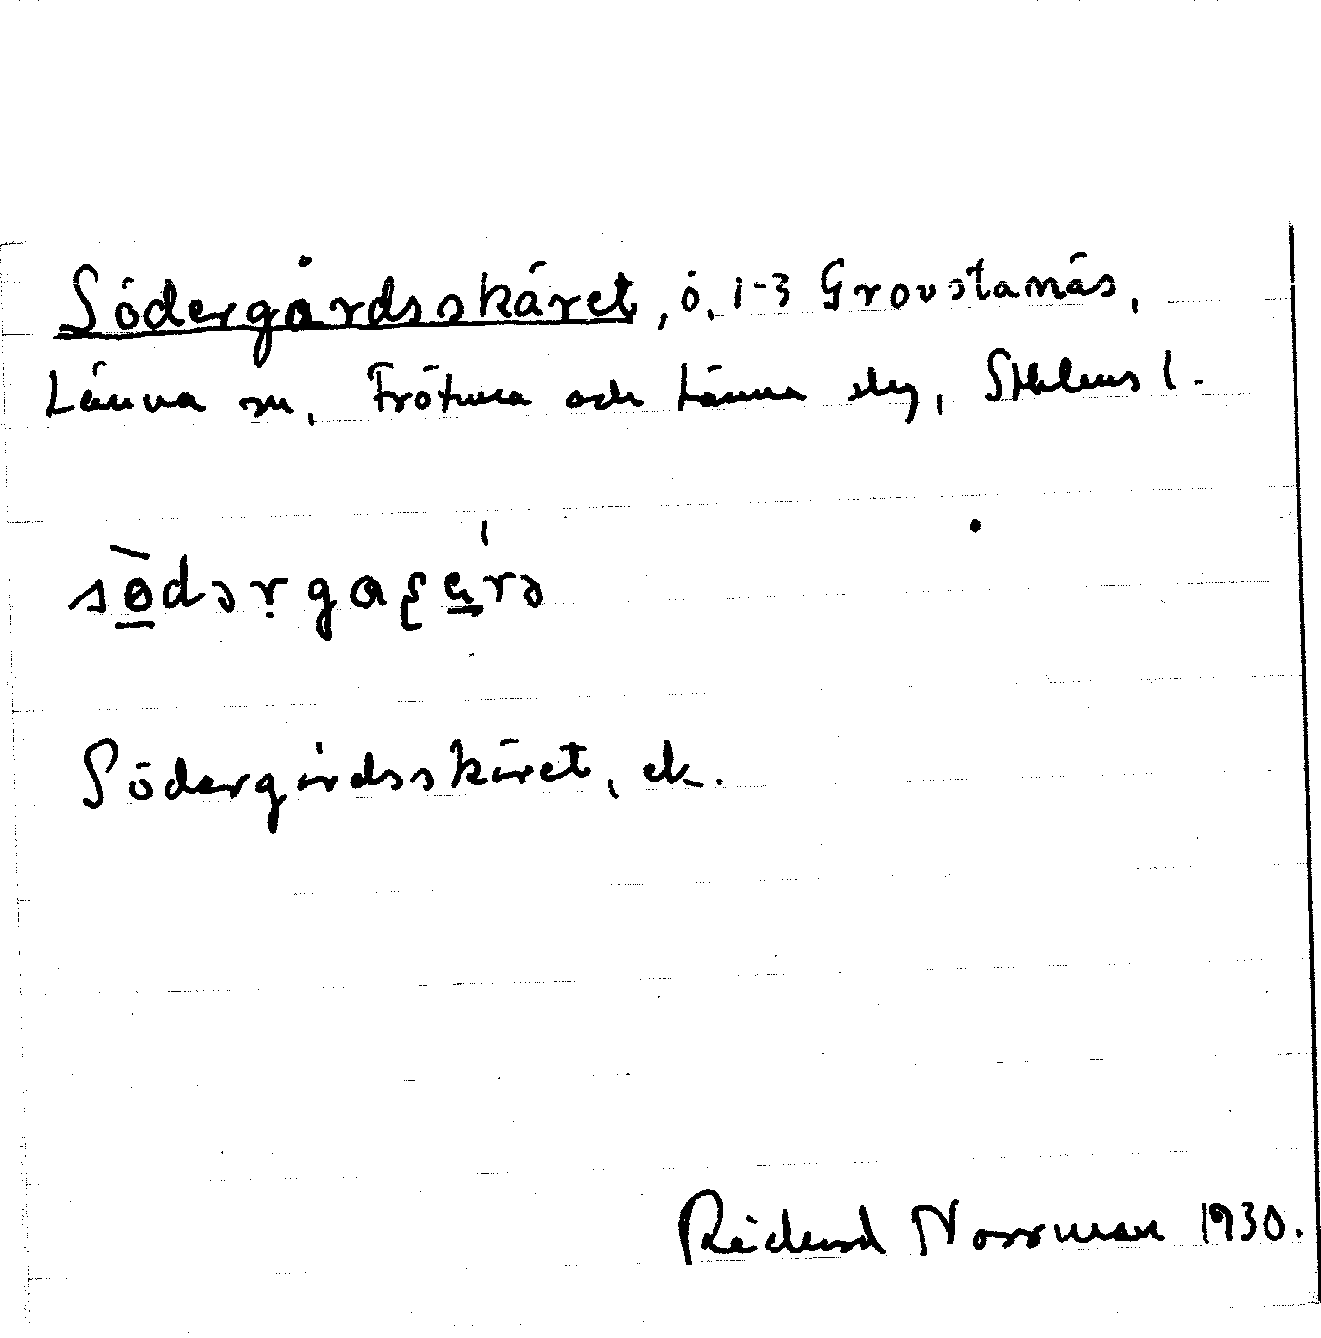 Södergårdsskäret, ö, 1-3 Grovstanäs,
Länna sn, Frötuna och Länna slg, Sthlms l.
södərgaʂærə
Södergårdsskäret, ek.
Rickard Norrman 1930.